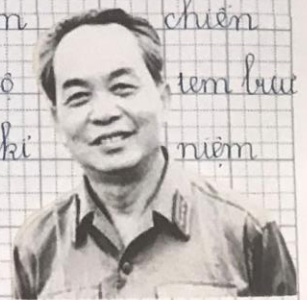 n chiến
ộ tem bưu
kỉ niệm